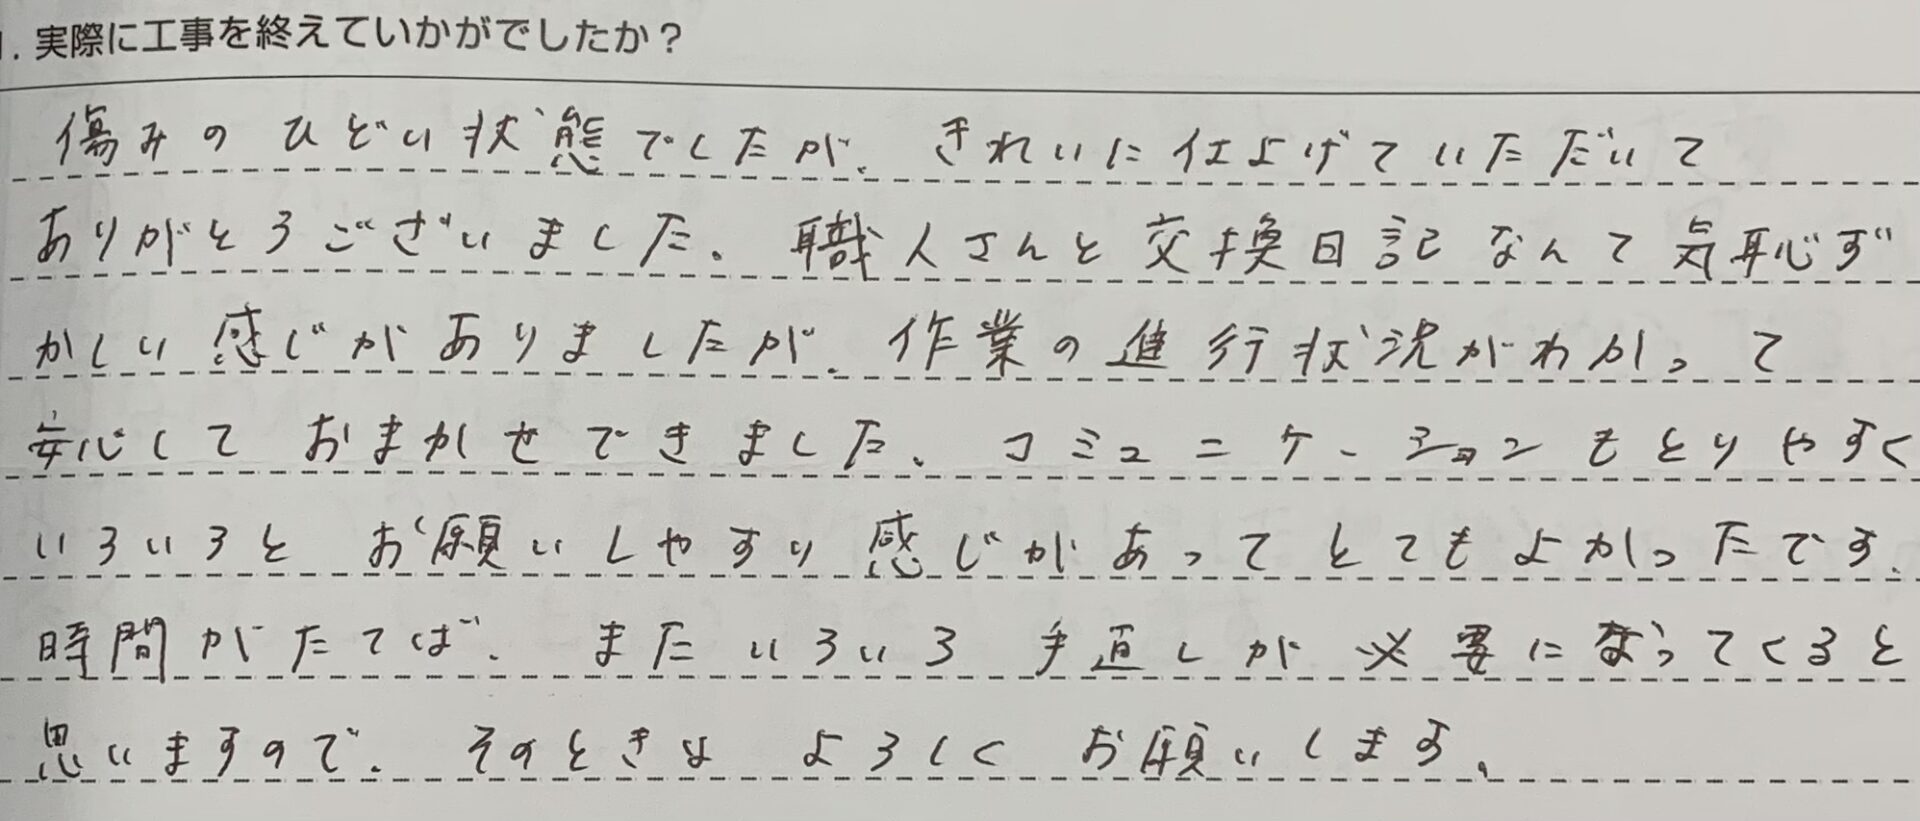 1. 実際に工事を終えていかがでしたか？
傷みのひどい状態でしたが、きれいに仕上げていただいて
ありがとうございました。職人さんと交換日記なんて気恥ず
かしい感じがありましたが、作業の進行状況がわかって
安心しておまかせできました。コミュニケーションもとりやすく
いろいろとお願いしやすい感じがあってとてもよかったです。
時間がたてば、またいろいろ手直しが必要になってくると
思いますので、そのときはよろしくお願いします。